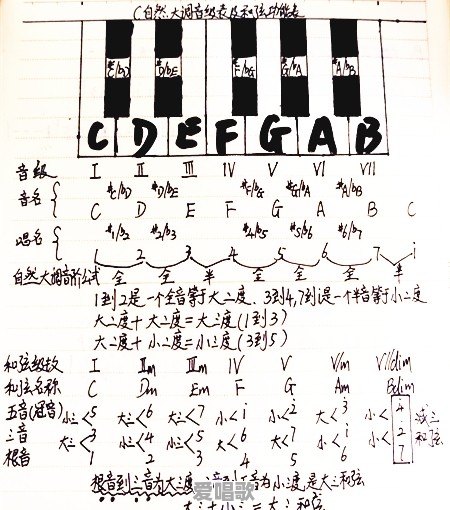 C自然大调音级表及和弦功能表
#C/bD #D/bE #F/bG #G/bA #A/bB
C D E F G A B
音级 I II III IV V VI VII
音名 #C/bD #D/bE #F/bG #G/bA #A/bB
C D E F G A B C
唱名 #1/b2 #2/b3 #4/b5 #5/b6 #6/b7
1 2 3 4 5 6 7 i
自然大调音阶公式 全 全 半 全 全 全 半
1到2是一个全音等于大二度、3到4,7到i是一个半音等于小二度
大二度+大二度=大三度(1到3)
大二度+小二度=小三度(3到5)
和弦级数 I IIm IIIm IV V VIm VIIdim
和弦名称 C Dm Em F G Am Bdim
五音(冠音) 小三<5 大三<6 大三<7 小<i 小<2 大<3 小<4 减三
三音 大三<3 小三<4 小三<5 大<6 大<7 小<i 小<2 和弦
根音 1 2 3 4 5 6 7
根音到三音为大三度,三音到五音为小三度是大三和弦
大三+小三=大三和弦
爱唱歌